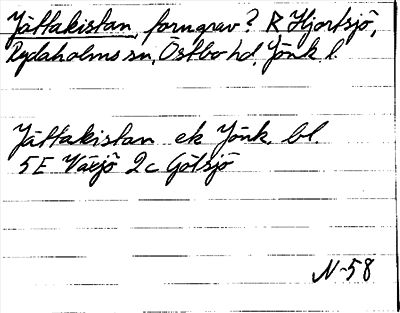 Jättakistan, forngrav? R Hjortsjö,
Rydaholms sn, Östbo hd, Jönk l.
Jättakistan ek Jönk. bl.
5E Växjö 2c Götsjö
N-58